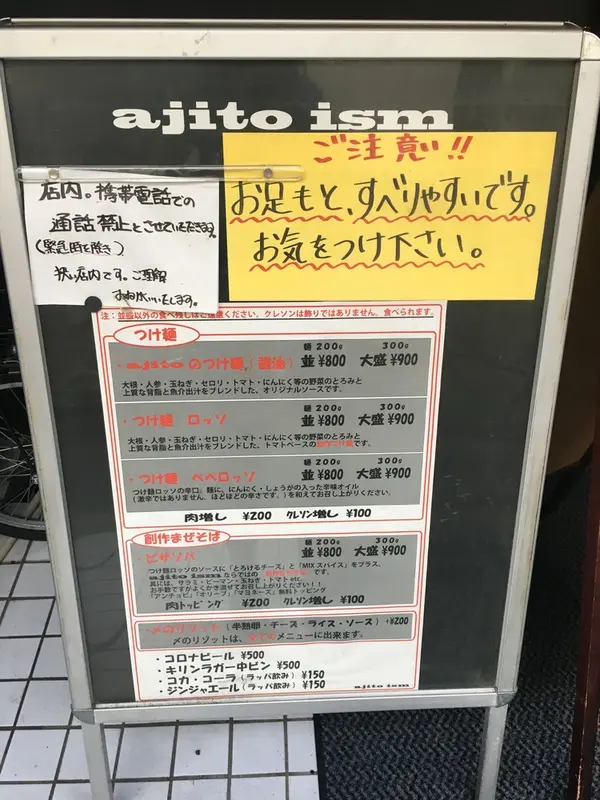 ajito ism
ご注意!!
お足もと、すべりやすいです。
お気をつけ下さい。
店内。携帯電話での
通話禁止とさせていただきます。
(緊急用を除き)
狭い店内です。ご理解
お願いいたします。
注:並盛以外の食べ残しはご遠慮ください。クレソンは飾りではありません。食べられます。
つけ麺
麺200g 300g
・ajitoのつけ麺(醤油) 並¥800 大盛¥900
大根・人参・玉ねぎ・セロリ・トマト・にんにく等の野菜のとろみと
上質な背脂と魚介出汁をブレンドした、オリジナルソースです。
麺200g 300g
・つけ麺 ロッソ 並¥800 大盛¥900
大根・人参・玉ねぎ・セロリ・トマト・にんにく等の野菜のとろみと
上質な背脂と魚介出汁をブレンドした、トマトベースの創作つけ麺です。
麺200g 300g
・つけ麺 ペペロッソ 並¥800 大盛¥900
つけ麺ロッソの辛口。麺に、にんにく・しょうがの入った辛味オイル
(激辛ではありません。ほどほどの辛さです。)を和えてお召し上がりください。
肉増し ¥200 クレソン増し ¥100
創作まぜそば
麺200g 300g
・ピザソバ 並¥800 大盛¥900
つけ麺ロッソのソースに「とろけるチーズ」と「MIXスパイス」をプラス、
ajito ismならではの です。
具には、サラミ・ピーマン・玉ねぎ・トマトetc.
お手数ですがよくかき混ぜてお召し上がりください!!
「アンチョビ」「オリーブ」「マヨネーズ」無料トッピング
肉トッピング ¥200 クレソン増し ¥100
・〆のリゾット(半熟卵・チーズ・ライス・ソース) +¥200
〆のリゾットは、全てのメニューに出来ます。
・コロナビール ¥500
・キリンラガー中ビン ¥500
・コカ・コーラ(ラッパ飲み) ¥150
・ジンジャエール(ラッパ飲み) ¥150
ajito ism